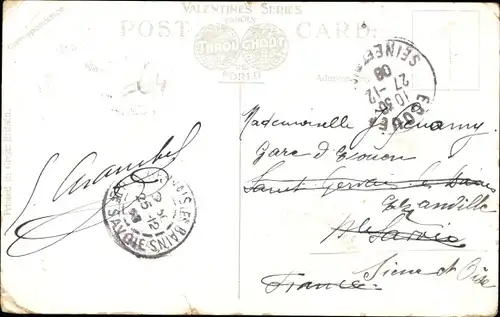 VALENTINE'S SERIES
FAMOUS
THROUGHOUT
THE
WORLD
POST CARD.
Correspondence
Printed in Great Britain.
Mademoiselle J.
Gare d'Ecouen
Saint Gervais les Bains
Ezanville
Hte Savoie
Seine et Oise
France
ECOUEN
10 50
27 -12
08
SEINE ET
LES BAINS
25 -12
08
HTE SAVOIE